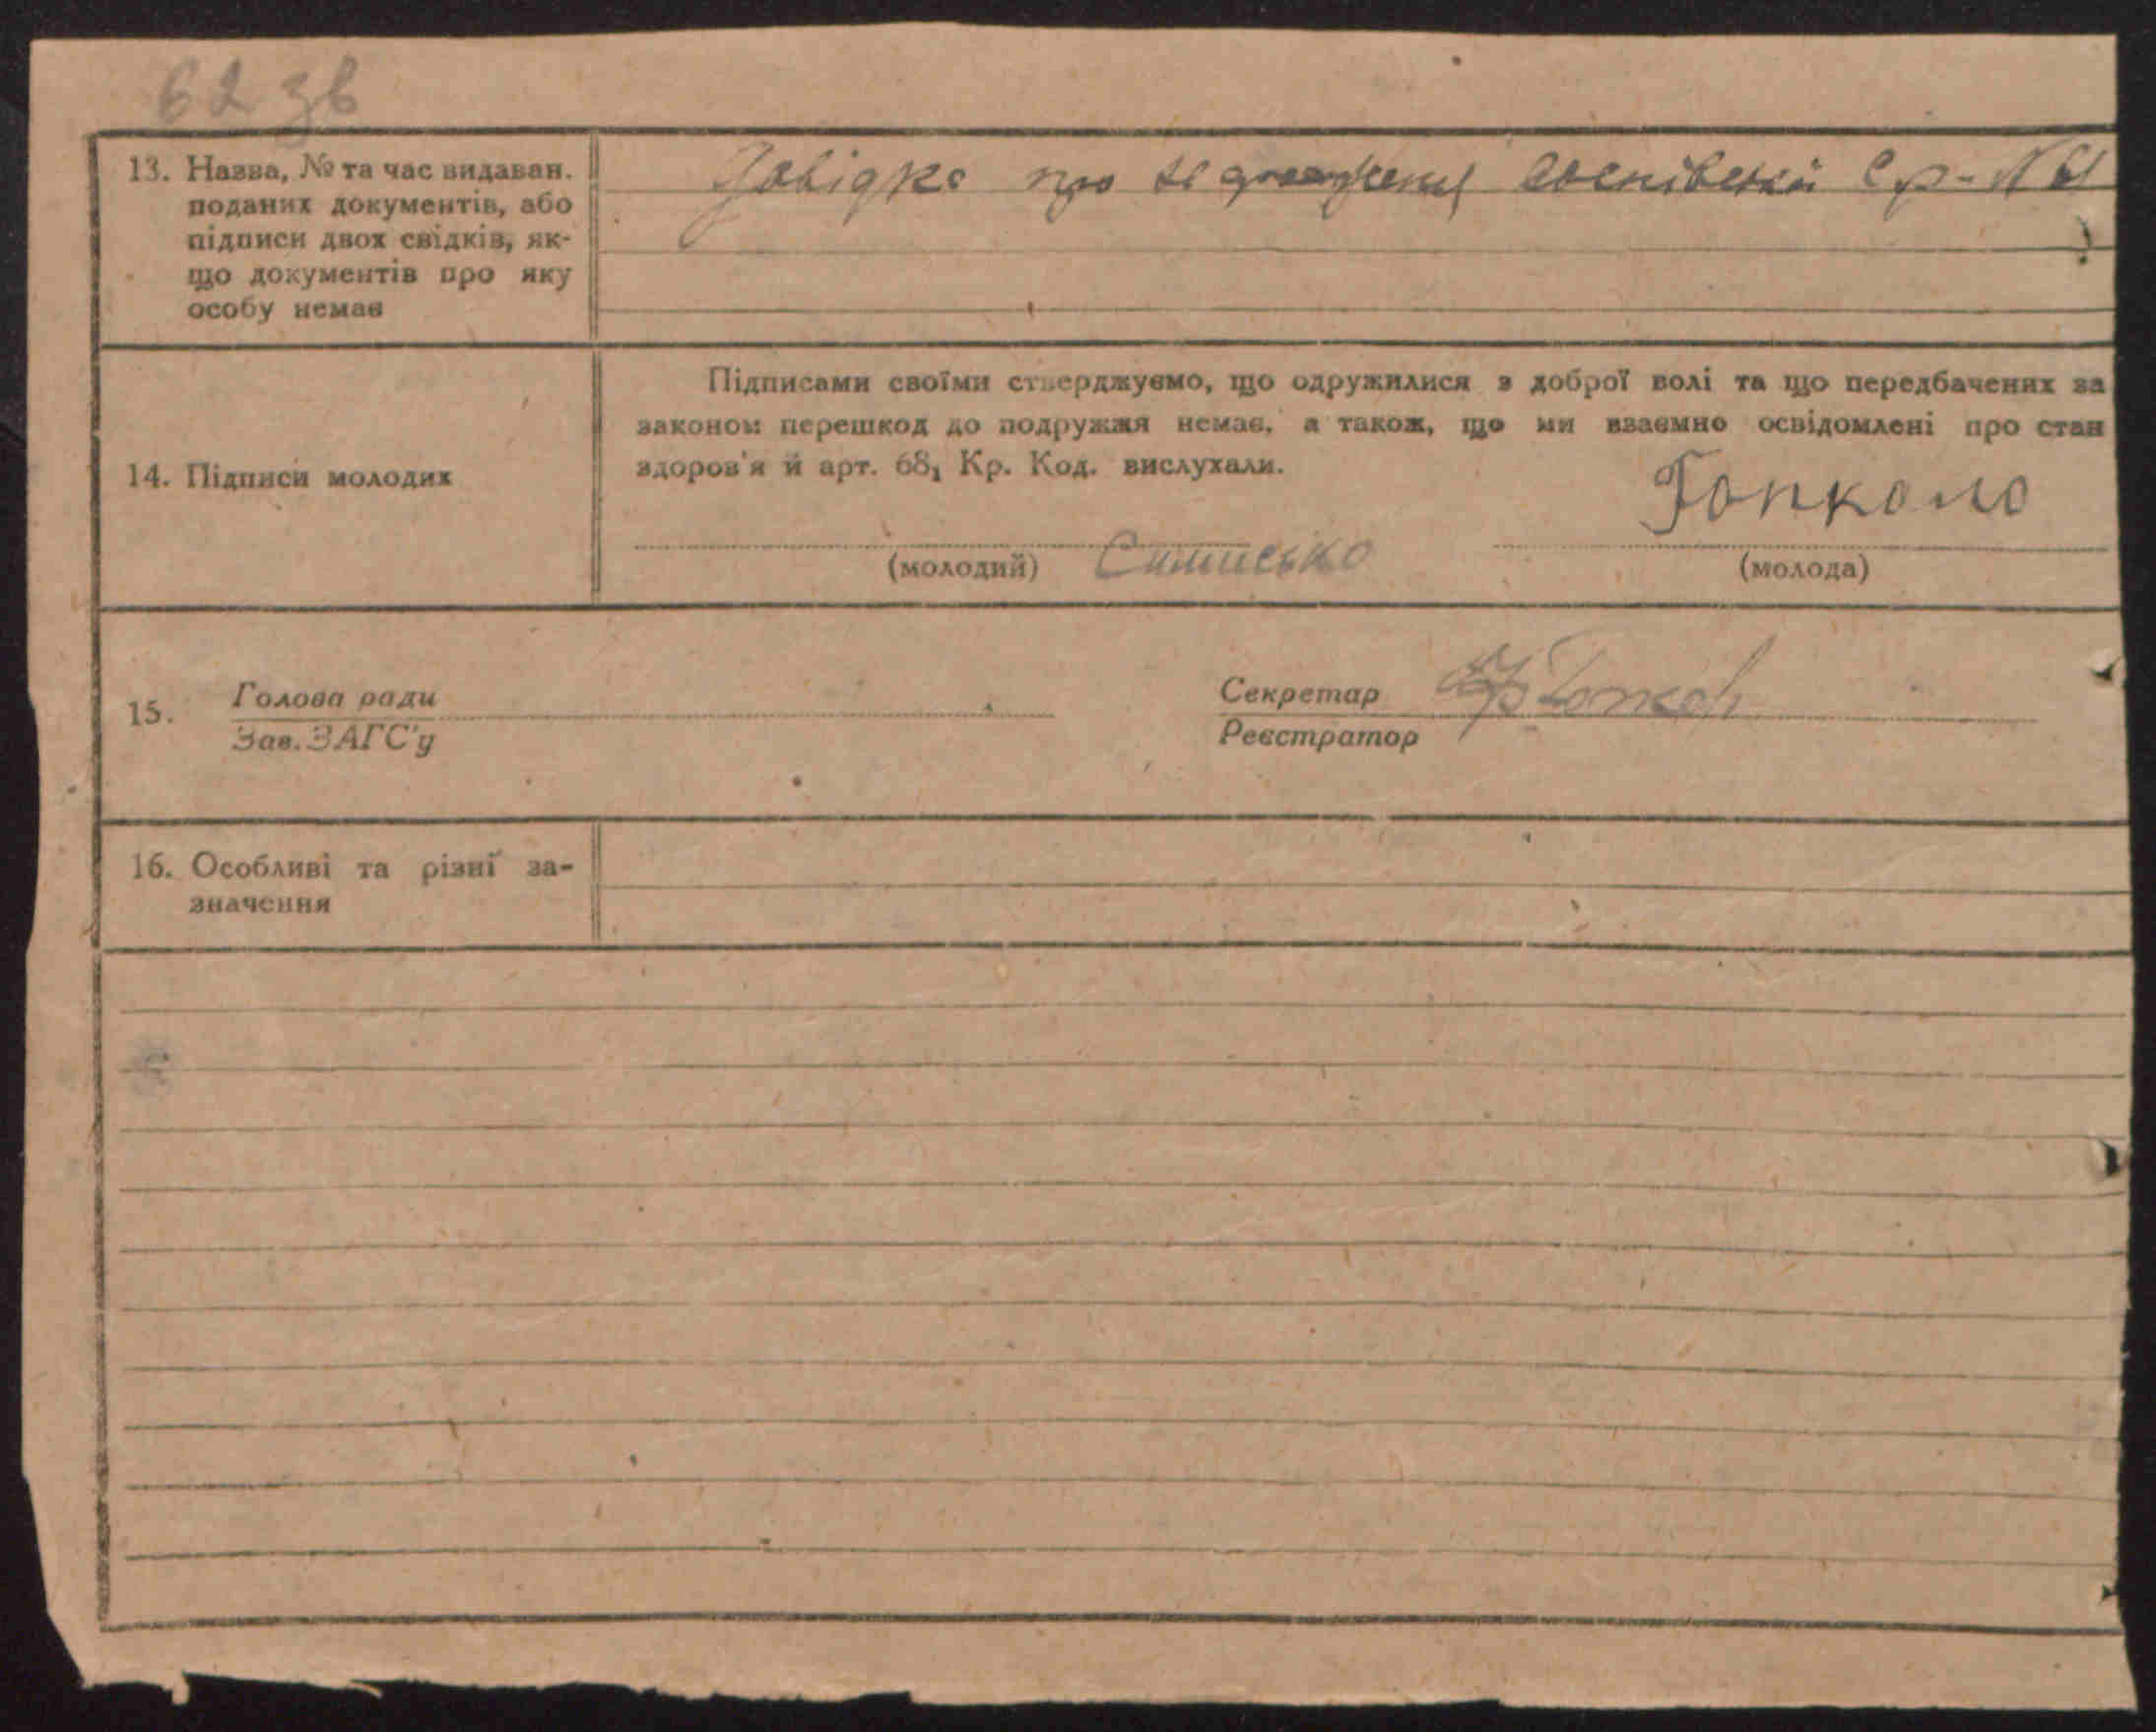 62 зв
13. Назва, № та час видаван. поданих документів, або підписи двох свідків, якщо документів про яку особу немає
Довідка про
14. Підписи молодих
Підписами своїми стверджуємо, що одружилися з доброї волі та що передбачених за
законом перешкод до подружжя немає, а також, що ми взаємно освідомлені про стан
здоров'я й арт. 68₁ Кр. Код. вислухали.
(молодий)
(молода)
15. Голова ради
Зав. ЗАГС'у
Секретар
Реєстратор
16. Особливі та різні за-
значення